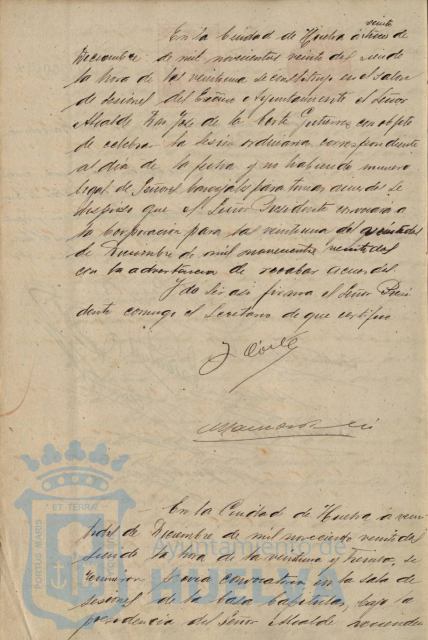 En la Ciudad de Huelva á veinte
Diciembre de mil novecientos veinte dos siendo
la hora de las veintiuna se constituyó en el Salon
de Sesiones del Excmo Ayuntamiento el Señor
Alcalde Don José de la Corte Gutierrez con objeto
de celebrar la sesion ordinaria correspondiente
al dia de la fecha y no habiendo numero
legal de Señores Concejales para tomar acuerdos se
dispuso que el Señor Presidente convocara a
la Corporacion para las veintiuna del veintidos
de Diciembre de mil novecientos veintidos
con la advertencia de recabar acuerdos.
Y de ser asi firma el Señor Presi
dente conmigo el Secretario de que certifico
J Corte
En la Ciudad de Huelva a vein
tidos de Diciembre de mil novecientos veintidos
siendo la hora de las veintiuna y treinta, se
reunieron previa convocatoria en la sala de
sesiones de las Casas Capitulares, bajo la
presidencia del Señor Alcalde
PORTUS MARIS
ET TERRAE
Ayuntamiento de
HUELVA